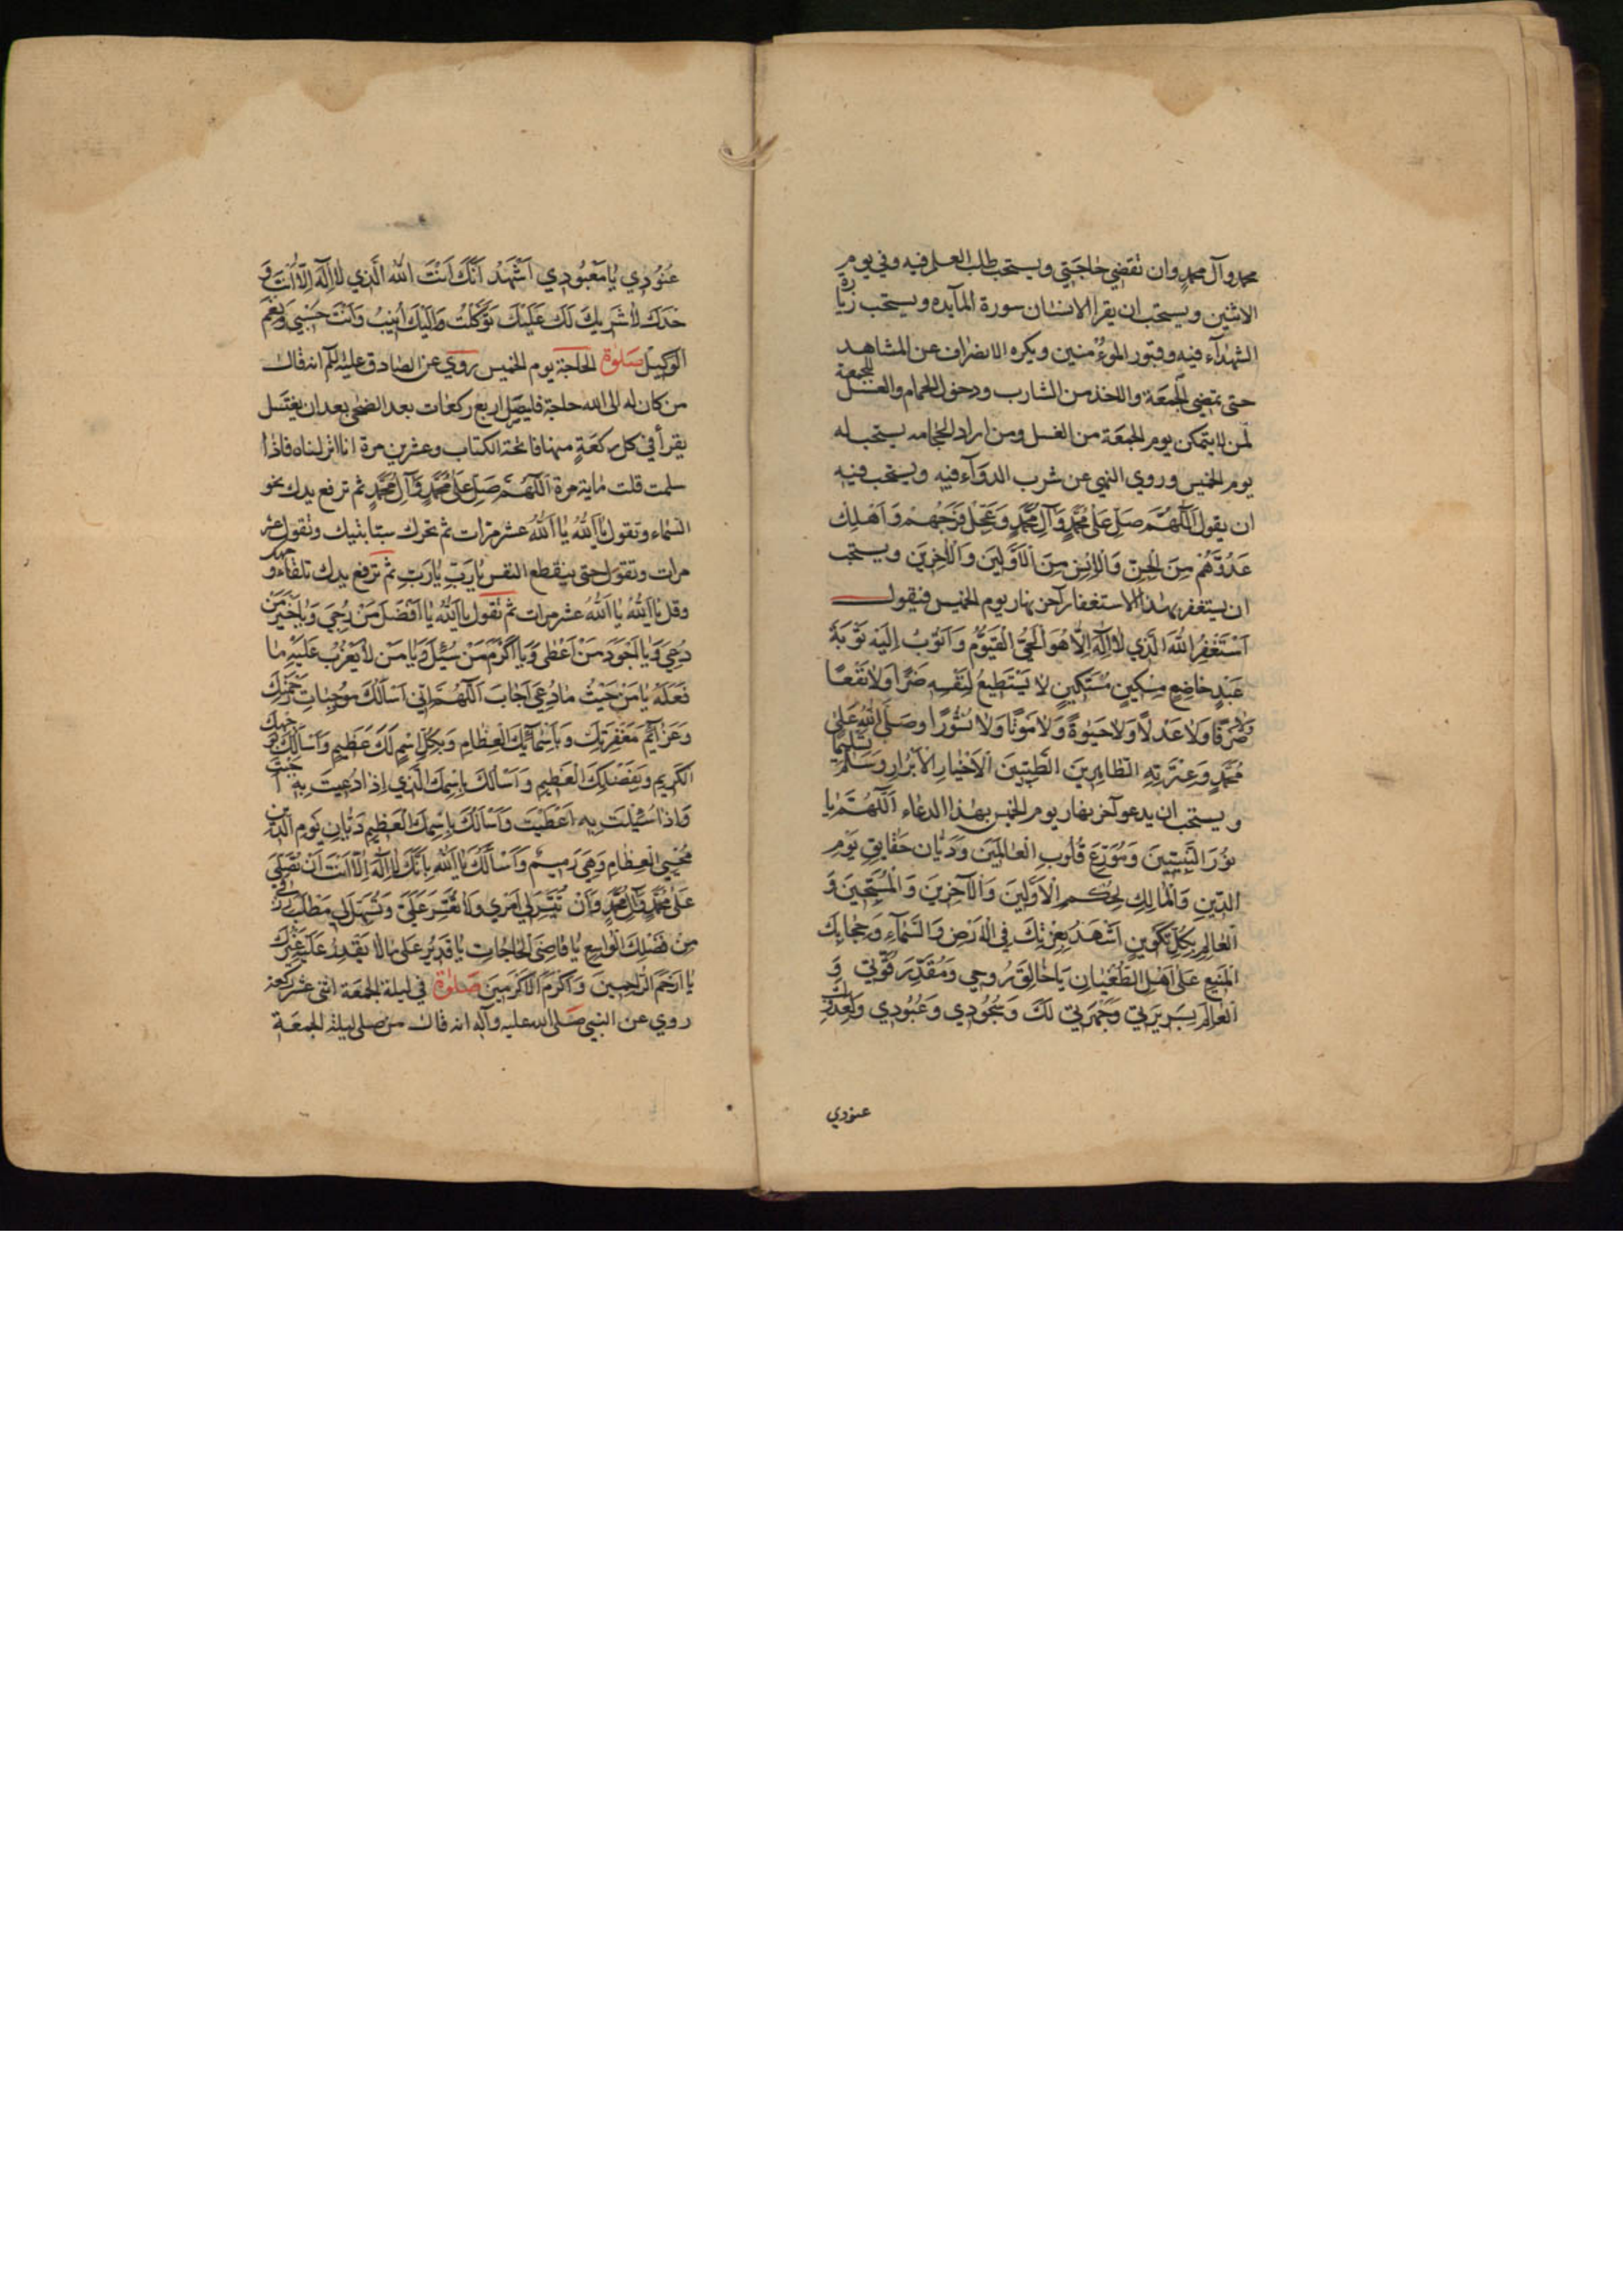 محمد وآل محمد وان تقضي حاجتي ويستحب طلب العلم فيه وفي يوم
الاثنين ويستحب ان يقرا الانسان سورة المآيده ويستحب زيارة
الشهدآء فيه وقبور المؤمنين ويكره الانصراف عن المشاهد
حتى تمضي الجمعة والاخذ من الشارب ودخول الحمام والغسل للجمعة
لمن لا يتمكن يوم الجمعة من الغسل ومن اراد الحجامه يستحب له
يوم الخميس وروي النهي عن شرب الدوآء فيه ويستحب فيه
ان يقول اَللّهُمَّ صَلِّ عَلى مُحَمَّدٍ وَآلِ مُحَمَّدٍ وَعَجِّلْ فَرَجَهُمْ وَاَهْلِكْ
عَدُوَّهُمْ مِنَ الْجِنِّ وَالْاِنْسِ مِنَ الْاَوَّلينَ وَالْآخِرينَ ويستحب
ان يستغفر بهذا الاستغفار آخر نهار يوم الخميس فيقول
اَسْتَغْفِرُ اللهَ الَّذي لا اِلهَ اِلّا هُوَ الْحَيُّ الْقَيُّومُ وَاَتُوبُ اِلَيْهِ تَوْبَةَ
عَبْدٍ خاضِعٍ مِسْكينٍ مُسْتَكينٍ لا يَسْتَطيعُ لِنَفْسِهِ ضَرًّا وَلا نَفْعًا
وَلا صَرْفًا وَلا عَدْلًا وَلا حَيٰوةً وَلا مَوْتًا وَلا نُشُورًا وصَلَّى اللهُ عَلى
مُحَمَّدٍ وَعِتْرَتِهِ الطّاهِرينَ الطَّيِّبينَ الْاَخْيارِ الْاَبْرارِ وَسَلَّمَ تَسْليمًا
ويستحب ان يدعو آخر نهار يوم الخميس بهذا الدعاء اَللّهُمَّ يا
نُورَ النَّبِيّينَ وَمُوزِعَ قُلُوبِ الْعالَمينَ وَدَيّانَ حَقايِقِ يَوْمِ
الدّينِ وَالْمالِكِ لِحُكْمِ الْاَوَّلينَ وَالْآخِرينَ وَالْمُسَبِّحينَ وَ
الْعالِمِ بِكُلِّ تَكْوينٍ اَشْهَدُ بِعِزَّتِكَ فِي الْاَرْضِ وَالسَّمآءِ وَحِجابِكَ
الْمَنيعِ عَلى اَهْلِ الطُّغْيانِ يا خالِقَ رُوحي وَمُقَدِّرَ قُوَّتي وَ
الْعالِمَ بِسَريرَتي وَجَهْرَتي لَكَ وَسُجُودي وَعُبُودي وَلِعَدُوِّكَ
عنودي
عُنُودي يا مَعْبُودي اَشْهَدُ اَنَّكَ اَنْتَ اللهُ الَّذي لا اِلهَ اِلّا اَنْتَ وَ
حْدَكَ لا شَريكَ لَكَ عَلَيْكَ تَوَكَّلْتُ وَاِلَيْكَ اُنيبُ وَاَنْتَ حَسْبي وَنِعْمَ
الْوَكيلُ صَلوة الحاجة يوم الخميس روي عن الصادق عليه السلم انه قال
من كان له الى الله حاجة فليصل اربع ركعات بعد الضحى بعد ان يغتسل
يقرأ في كل ركعة منها فاتحة الكتاب وعشرين مرة انا انزلناه فاذا
سلمت قلت ماية مرة اَللّهُمَّ صَلِّ عَلى مُحَمَّدٍ وَآلِ مُحَمَّدٍ ثم ترفع يدك نحو
السماء وتقول يا اَللهُ يا اَللهُ عشر مرات ثم تحرك سبابتيك وتقول عشر
مرات وتقول حتى ينقطع النفس يا رَبِّ يا رَبِّ ثم ترفع يدك تلقاء وجهك
وقل يا اَللهُ يا اَللهُ عشر مرات ثم تقول يا اَللهُ يا اَفْضَلَ مَنْ رُجِيَ وَيا خَيْرَ مَنْ
دُعِيَ وَيا اَجْوَدَ مَنْ اَعْطى وَيا اَكْرَمَ مَنْ سُئِلَ وَيا مَنْ لا يَعْزُبُ عَلَيْهِ ما
فَعَلَهُ يا مَنْ حَيْثُ ما دُعِيَ اَجابَ اَللّهُمَّ اِنّي اَسْاَلُكَ مُوجِباتِ رَحْمَتِكَ
وَعَزآئِمَ مَغْفِرَتِكَ وَبِاَسْمآئِكَ الْعِظامِ وَبِكُلِّ اسْمٍ لَكَ عَظيمٍ وَاَسْاَلُكَ بِوَجْهِكَ
الْكَريمِ وَبِفَضْلِكَ الْعَظيمِ وَاَسْاَلُكَ بِاسْمِكَ الَّذي اِذا دُعيتَ بِهِ اَجَبْتَ
وَاِذا سُئِلْتَ بِهِ اَعْطَيْتَ وَاَسْاَلُكَ بِاسْمِكَ الْعَظيمِ دَيّانِ يَوْمِ الدّينِ
مُحْيِي الْعِظامِ وَهِيَ رَميمٌ وَاَسْاَلُكَ يا اَللهُ بِاَنَّكَ لا اِلهَ اِلّا اَنْتَ اَنْ تُصَلِّيَ
عَلى مُحَمَّدٍ وَآلِ مُحَمَّدٍ وَاَنْ تُيَسِّرَ لي اَمْري وَلا تُعَسِّرَ عَلَيَّ وَتُسَهِّلَ لي مَطْلَبَ رِزْقي
مِنْ فَضْلِكَ الْواسِعِ يا قاضِيَ الْحاجاتِ يا قَديرُ عَلى ما لا يَقْدِرُ عَلَيْهِ غَيْرُكَ
يا اَرْحَمَ الرّاحِمينَ وَاَكْرَمَ الْاَكْرَمينَ صَلوة في ليلة الجمعة اثنى عشر ركعة
روي عن النبي صَلى الله عليه وآله انه قال من صلى ليلة الجمعة